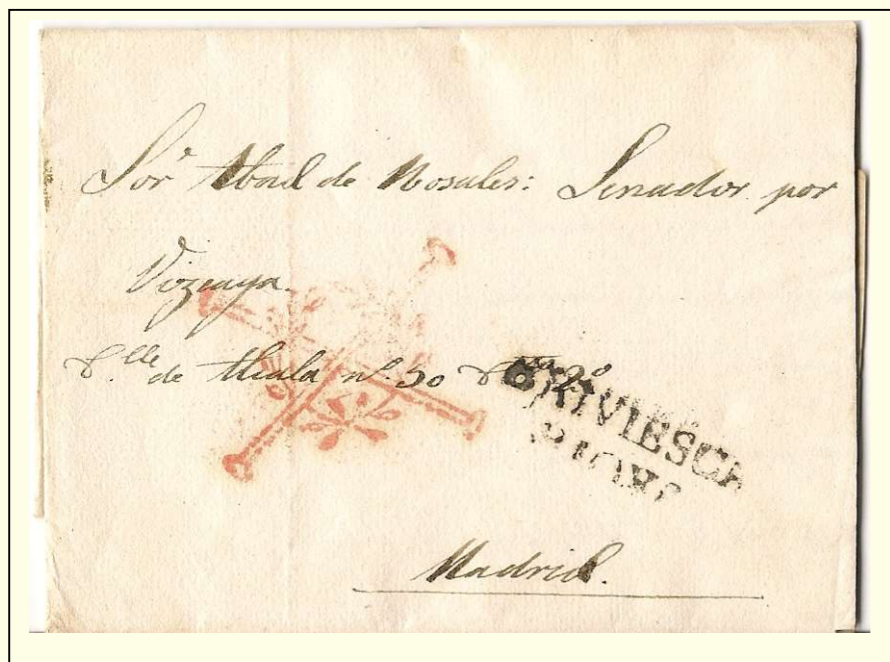 Sor. Abad de Rosales: Senador por
Vizcaya.
C.lle de Alcala nº. 50 2º
BRIVIESCA
Madrid.